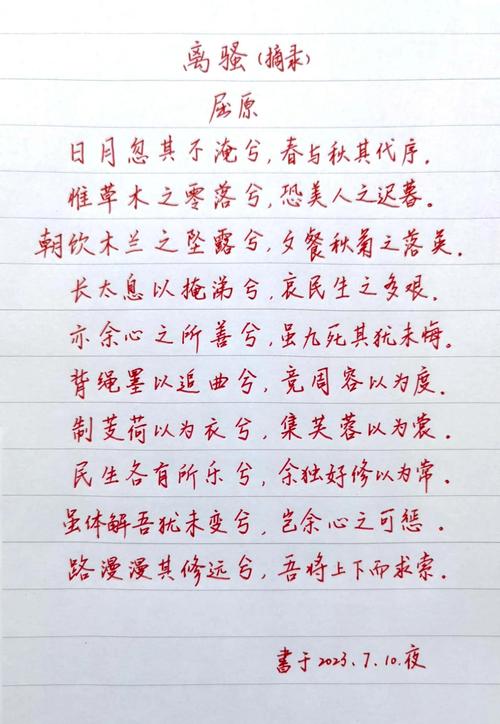 离骚(摘录)
屈原
日月忽其不淹兮,春与秋其代序.
惟草木之零落兮,恐美人之迟暮。
朝饮木兰之坠露兮,夕餐秋菊之落英.
长太息以掩涕兮,哀民生之多艰.
亦余心之所善兮,虽九死其犹未悔.
背绳墨以追曲兮,竞周容以为度.
制芰荷以为衣兮,集芙蓉以为裳.
民生各有所乐兮,余独好修以为常.
虽体解吾犹未变兮,岂余心之可惩.
路漫漫其修远兮,吾将上下而求索.
書于2023.7.10.夜